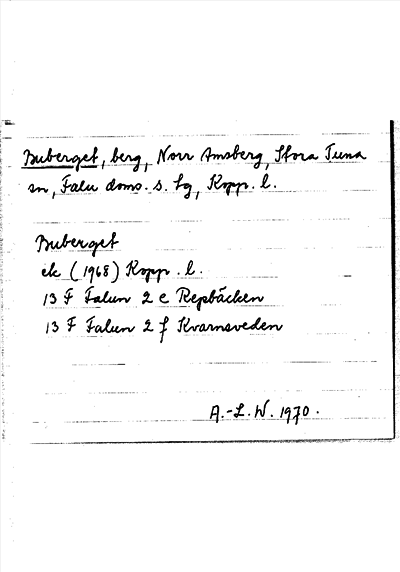 Buberget, berg, Norr Amsberg, Stora Tuna
sn, Falu doms. s. tg, Kopp. l.
Buberget
ek (1968) Kopp. l.
13 F Falun 2 e Repbäcken
13 F Falun 2 f Kvarnsveden
A.-L. W. 1970.